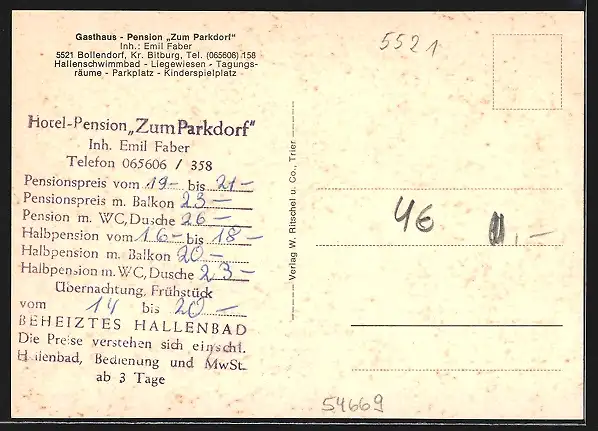 Gasthaus - Pension „Zum Parkdorf“
Inh.: Emil Faber
5521 Bollendorf, Kr. Bitburg, Tel. (065606) 158
Hallenschwimmbad - Liegewiesen - Tagungs-
räume - Parkplatz - Kinderspielplatz
5521
Hotel-Pension „Zum Parkdorf“
Inh. Emil Faber
Telefon 065606 / 358
Pensionspreis vom 19- bis 21-
Pensionspreis m. Balkon 23-
Pension m. WC, Dusche 26-
Halbpension vom 16- bis 18-
Halbpension m. Balkon 20-
Halbpension m. WC, Dusche 23-
Übernachtung, Frühstück
vom 14 bis 20-
BEHEIZTES HALLENBAD
Die Preise verstehen sich einschl.
Hallenbad, Bedienung und MwSt.
ab 3 Tage
Verlag W. Ritschel u. Co., Trier
46
54669